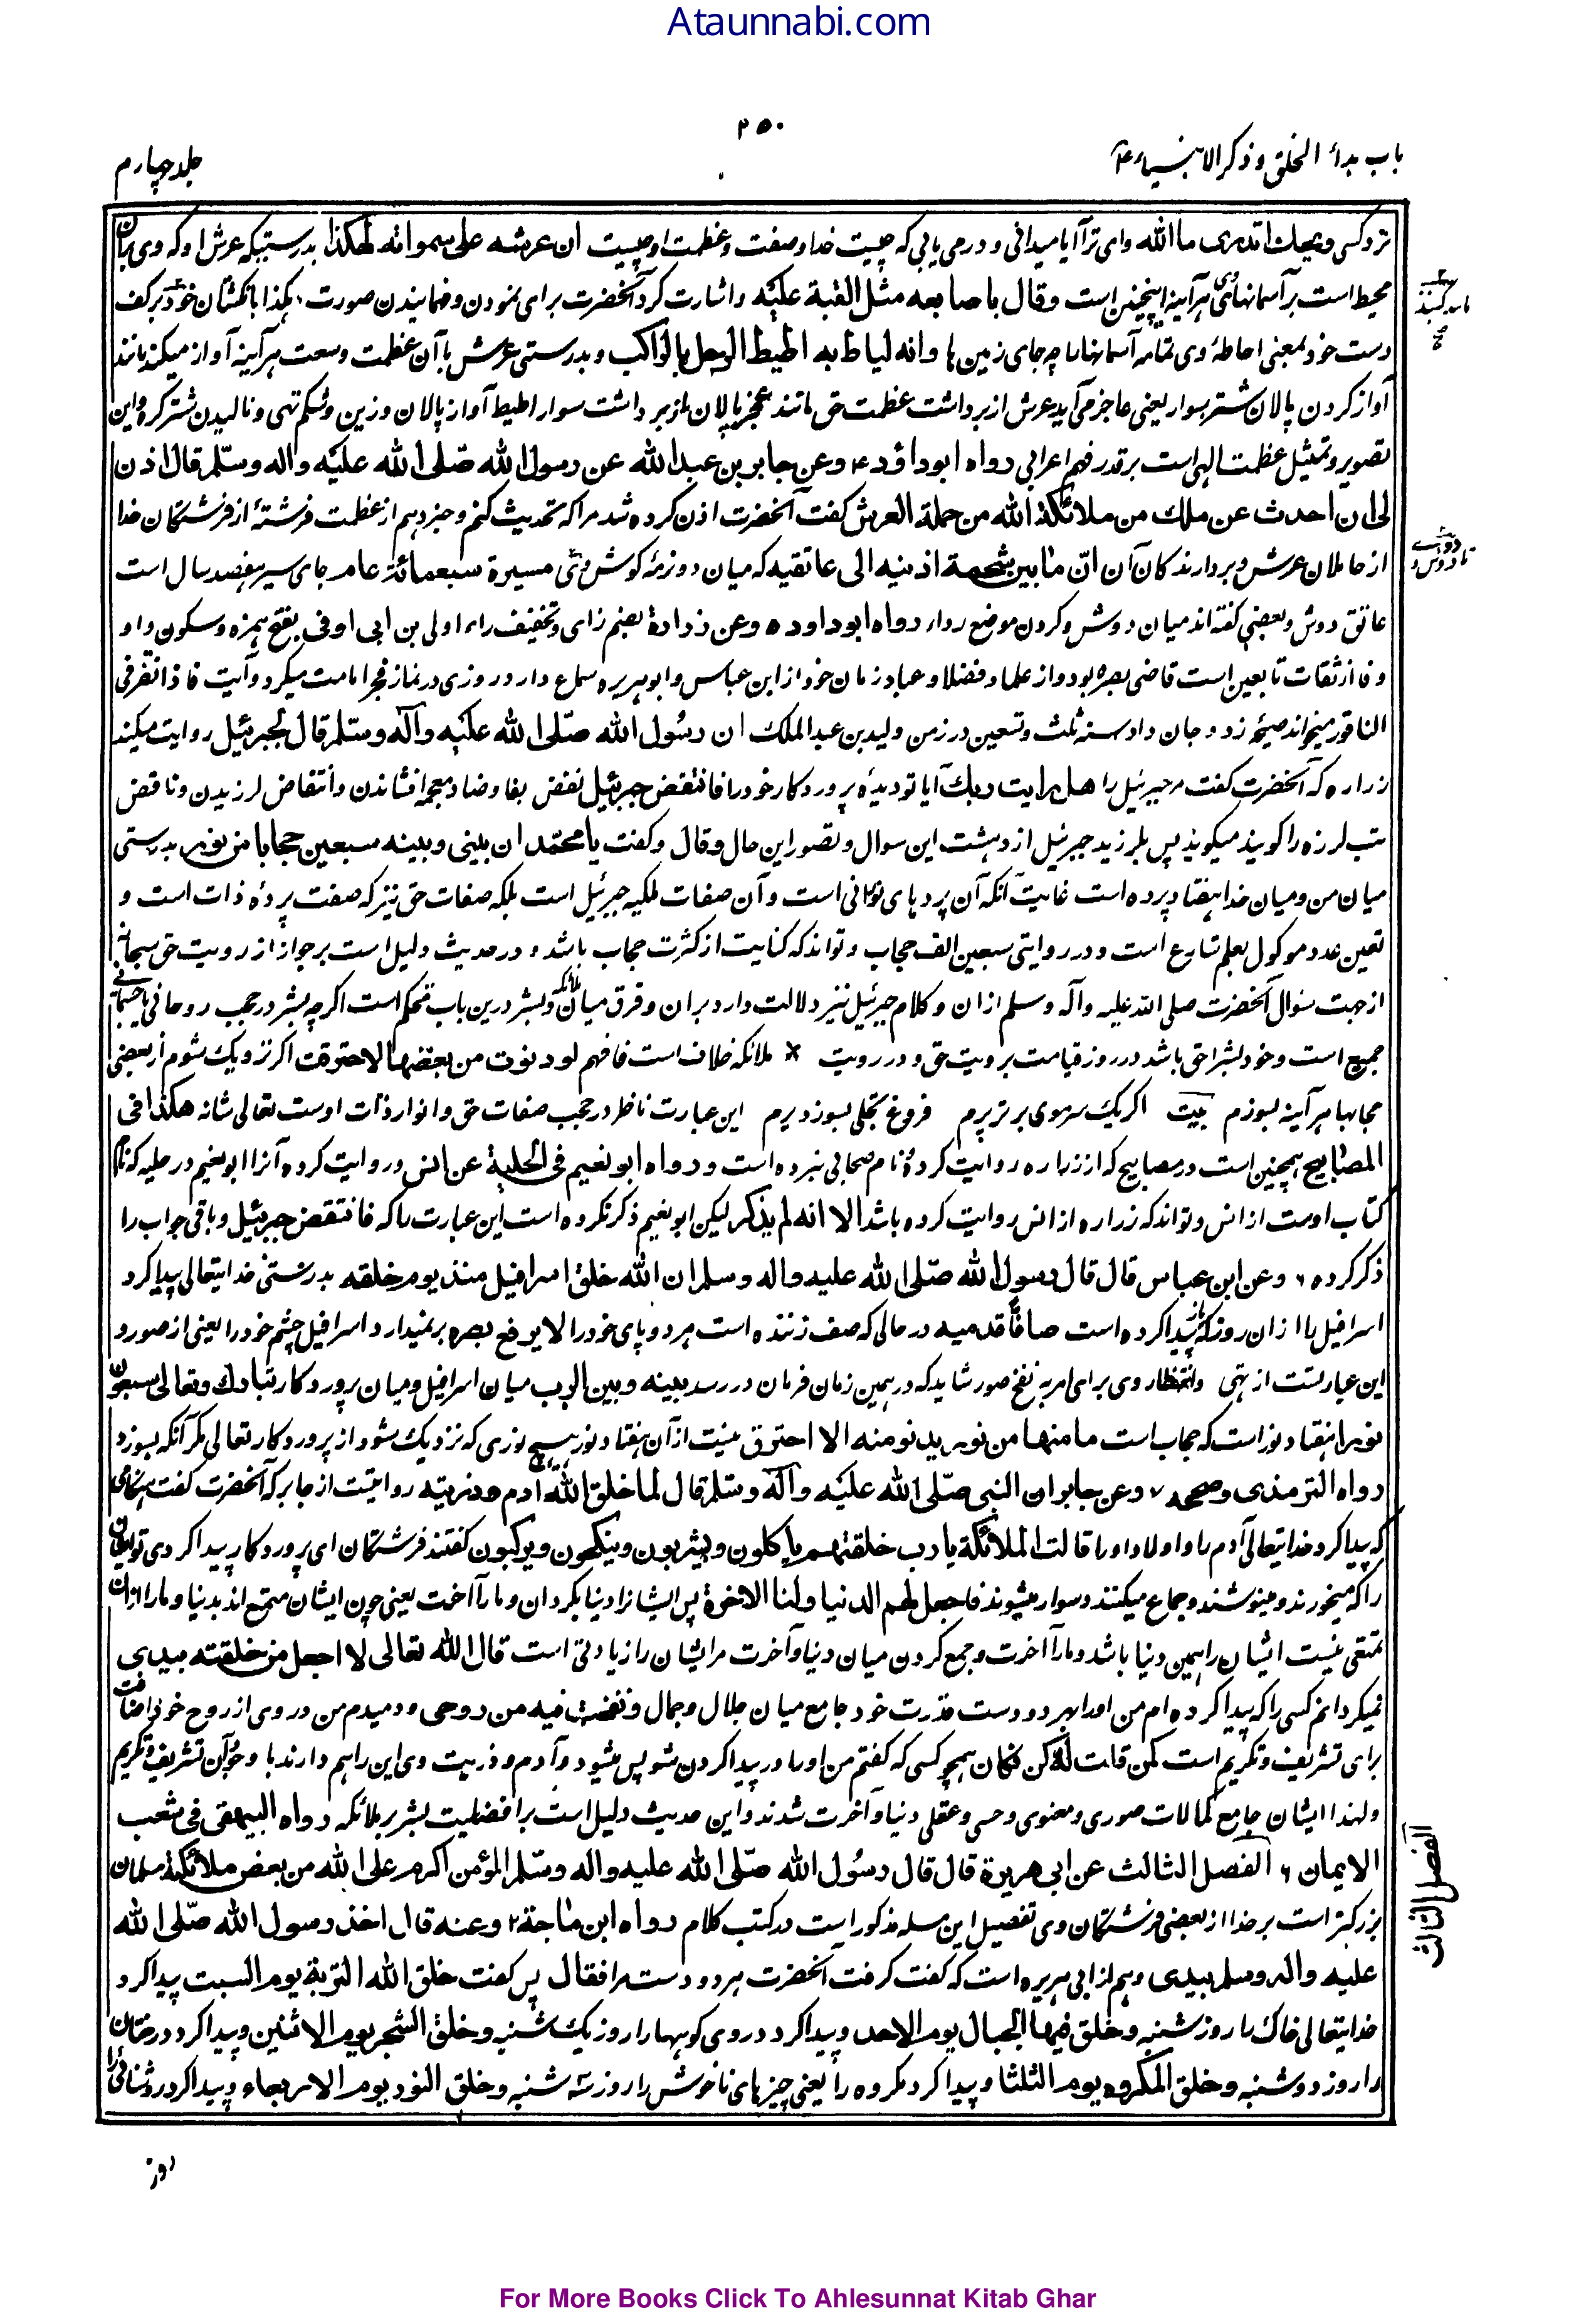 Ataunnabi.com
۲۵۰
باب بدأ الخلق و ذکر الانبیاء
جلد چهارم
تر دکسی ویحك اتدری ما الله وای ترا آیا میدانی و درمی یابی که چیست خدا و صفت و عظمت او چیست ان عرشه علی سمواته لهکذا بدرستیکه عرش او که وی بآن
محیط است بر آسمانهای وی هر آینه اینچنین است وقال باصابعه مثل القبة علیه و اشارت کرد آنحضرت برای نمودن و نمایندن صورت هکذا بانگشتان خود بر کف
دست خود بمعنی احاطهٔ وی تمامه آسمانها را چه جای زمین ها وانه لیاط به اطیط الرحل بالراکب و بدرستی عرش با آن عظمت و وسعت هر آینه آواز میکند مانند
آواز کردن پالان شتر بسوار یعنی عاجز می آید عرش از برداشت عظمت حق مانند عجز پالان از برداشت سوار اطیط آواز پالان و زین و شکم تهی و نالیدن شتر کره و این
تصویر و تمثیل عظمت الهی است بر قدر فهم اعرابی رواه ابوداؤد وعن جابر بن عبدالله عن رسول الله صلی الله علیه واله وسلم قال اذن
لی ان احدث عن ملك من ملائکة الله من حملة العرش گفت آنحضرت اذن کرده شد مرا که تحدیث کنم و خبر دهم از عظمت فرشتهٔ از فرشتگان خدا
از حاملان عرش و بردارندگان آن انّ ما بین شحمة اذنیه الی عاتقیه که میان دو نرمهٔ گوش وی مسیرة سبعمائة عام جای سیر هفصد سال است
عاتق دوش و بعضی گفته اند میان دوش و گردن موضع رداء رواه ابوداود وعن زرارة بضم زای و تخفیف راء اولی بن ابی اوفی بفتح همزه و سکون واو
و فا از ثقات تابعین است قاضی بصره بود و از علما و فضلا و عباد زمان خود از ابن عباس و ابوهریره سماع دارد روزی در نماز فجر امامت میکرد و آیت فاذا نقر فی
الناقور میخواند صیحه زد و جان داد سنه ثلث و تسعین در زمن ولید بن عبدالملک ان رسول الله صلّی الله علیه وآله وسلم قال لجبرئیل روایت میکند
زراره که آنحضرت گفت مر جبرئیل را هل رایت ربك آیا تو دیدهٔ پروردگار خود را فانتقض جبرئیل نفض بفا و ضاد معجمه افشاندن و انتفاض لرزیدن و نافض
تب لرزه را گویند میگوید پس بلرزید جبرئیل از دهشت این سوال و تصور این حال وقال و گفت یا محمد ان بینی وبینه سبعین حجابا من نور بدرستی
میان من و میان خدا هفتاد پرده است غایت آنکه آن پردهای نورانی است و آن صفات ملکیه جبرئیل است بلکه صفات حق نیز که صفت پردهٔ ذات است و
تعین عدد موکول بعلم شارع است و در روایتی سبعین الف حجاب و تواند که کنایت از کثرت حجاب باشد و در حدیث دلیل است بر جواز از رویت حق سبحانه
از جهت سؤال آنحضرت صلی الله علیه وآله وسلم ازان و کلام جبرئیل نیز دلالت دارد بر ان و فرق میان ملائکه و بشر درین باب تحکم است اگر چه بشر در حجب روحانی یا جسمانی
جمیع است و خود بشر احق باشد در روز قیامت برویت حق و در رویت ملائکه خلاف است فافهم لو دنوت من بعضها لاحترقت اگر نزدیک شوم از بعضی
حجابها هر آینه بسوزم بیت اگر یک سر موی بر تر پرم فروغ تجلی بسوزد پرم این عبارت ناظر در حجب صفات حق و انوار ذات اوست تعالی شانه هکذا فی
المصابیح همچنین است در مصابیح که از زراره روایت کرده نام صحابی نبرده است ورواه ابو نعیم فی الحلیة عن انس و روایت کرده آنرا ابو نعیم در حلیه که نام
کتاب اوست از انس و تواند که زراره از انس روایت کرده باشد الا انه لم یذکر لیکن ابو نعیم ذکر نکرده است این عبارت را که فانتقض جبرئیل و باقی جواب را
ذکر کرده وعن ابن عباس قال قال رسول الله صلّی الله علیه واله وسلم ان الله خلق اسرافیل منذ یوم خلقه بدرستی خدایتعالی پیدا کرد
اسرافیل را ازان روز که باز پیدا کرده است صافّا قدمیه در حالی که صف زننده است هر دو پای خود را لا یرفع بصره بر نمیدارد اسرافیل چشم خود را یعنی از صور و
این عبارتست از تهی وانتظار وی برای امر به نفخ صور شاید که در همین زمان فرمان در رسد بینه وبین الرب میان اسرافیل و میان پروردگار تبارك وتعالی سبعون
نورا هفتاد نور است که حجاب است ما منها من نور یدنو منه الا احترق نیست از آن هفتاد نور هیچ نوری که نزدیک شود از پروردگار تعالی مگر آنکه بسوزد
رواه الترمذی وصححه وعن جابر ان النبی صلّی الله علیه وآله وسلم قال لما خلق الله ادم وذریته روایتست از جابر که آنحضرت گفت هنگامی
که پیدا کرد خدایتعالی آدم را و اولاد او را قالت الملائکة یا رب خلقتهم یاکلون ویشربون وینکحون ویرکبون گفتند فرشتگان ای پروردگار پیدا کردی تو ایشان
را که میخورند و مینوشند و جماع میکنند و سوار میشوند فاجعل لهم الدنیا ولنا الاخرة پس ایشانرا دنیا بگردان و مارا آخرت یعنی چون ایشان متمتع اند بدنیا و مارا ازان
تمتعی نیست ایشان را همین دنیا باشد و مارا آخرت و جمع کردن میان دنیا و آخرت مر ایشان را زیادتی است قال الله تعالی لا اجعل من خلقته بیدی
نمیگردانم کسی را که پیدا کرده ام من او را بهر دو دست قدرت خود جامع میان جلال و جمال ونفخت فیه من روحی و دمیدم من در وی از روح خود اضافت
برای تشریف و تکریم است کمن قلت له کن فکان همچو کسی که گفتم من او را در پیدا کردن شو پس میشود و آدم و ذریت وی این را هم دارند با وجود آن تشریف و تکریم
ولهذا ایشان جامع کمالات صوری و معنوی و حسی و عقلی دنیا و آخرت شدند و این حدیث دلیل است بر افضلیت بشر بر ملائکه رواه البیهقی فی شعب
الایمان الفصل الثالث عن ابی هریرة قال قال رسول الله صلّی الله علیه واله وسلم المؤمن اکرم علی الله من بعض ملائکة مسلمان
بزرگتر است بر خدا از بعضی فرشتگان وی تفصیل این مسله مذکور است در کتب کلام رواه ابن ماجة وعنه قال اخذ رسول الله صلّی الله
علیه واله وسلم بیدی و هم از ابی هریره است که گفت گرفت آنحضرت هر دو دست مرا فقال پس گفت خلق الله التربة یوم السبت پیدا کرد
خدایتعالی خاک را روز شنبه وخلق فیها الجبال یوم الاحد و پیدا کرد در وی کوهها را روز یک شنبه وخلق الشجر یوم الاثنین و پیدا کرد درختان
را روز دوشنبه وخلق المکروه یوم الثلثا و پیدا کرد مکروه را یعنی چیزهای ناخوش را روز سه شنبه وخلق النور یوم الاربعاء و پیدا کرد روشنائی را
الفصل الثالث
روز
For More Books Click To Ahlesunnat Kitab Ghar